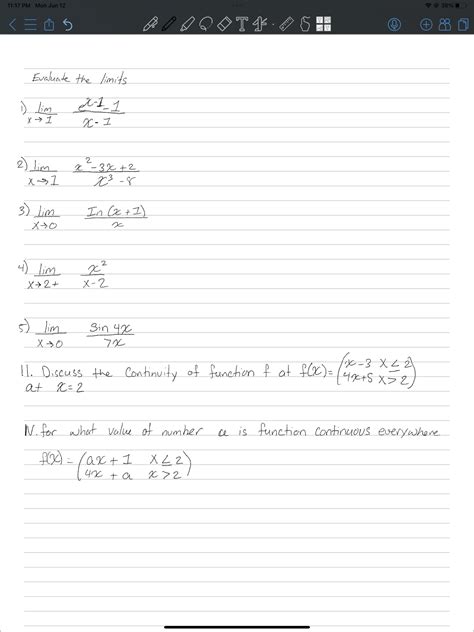 11:17 PM Mon Jun 12
38%
Evaluate the limits
1) lim e^x-1 - 1
x → 1 x - 1
2) lim x² - 3x + 2
x → 1 x³ - 8
3) lim In (x + 1)
x → 0 x
4) lim x²
x → 2+ x - 2
5) lim Sin 4x
x → 0 7x
11. Discuss the Continuity of function f at f(x) = (x - 3 x ≤ 2
at x = 2 4x + 5 x > 2)
N. for what value of number a is function continuous everywhere.
f(x) = (ax + 1 x ≤ 2
4x + a x > 2)